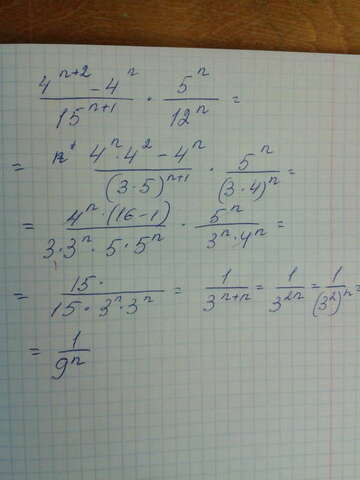 (4^(n+2) - 4^n)/(15^(n+1)) · (5^n)/(12^n) =
= (4^n · 4^2 - 4^n)/((3·5)^(n+1)) · (5^n)/((3·4)^n) =
= (4^n · (16-1))/(3·3^n · 5·5^n) · (5^n)/(3^n · 4^n) =
= (15·)/(15·3^n·3^n) = 1/(3^(n+n)) = 1/(3^(2n)) = 1/((3^2)^n) =
= 1/(9^n)